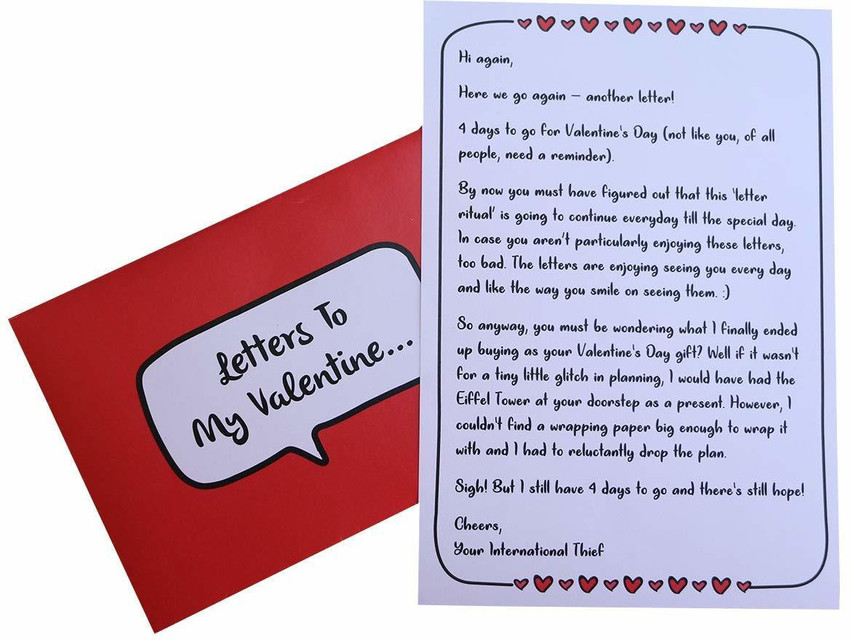 Letters To
My Valentine...
Hi again,
Here we go again – another letter!
4 days to go for Valentine's Day (not like you, of all
people, need a reminder).
By now you must have figured out that this 'letter
ritual' is going to continue everyday till the special day.
In case you aren't particularly enjoying these letters,
too bad. The letters are enjoying seeing you every day
and like the way you smile on seeing them. :)
So anyway, you must be wondering what I finally ended
up buying as your Valentine's Day gift? Well if it wasn't
for a tiny little glitch in planning, I would have had the
Eiffel Tower at your doorstep as a present. However, I
couldn't find a wrapping paper big enough to wrap it
with and I had to reluctantly drop the plan.
Sigh! But I still have 4 days to go and there's still hope!
Cheers,
Your International Thief